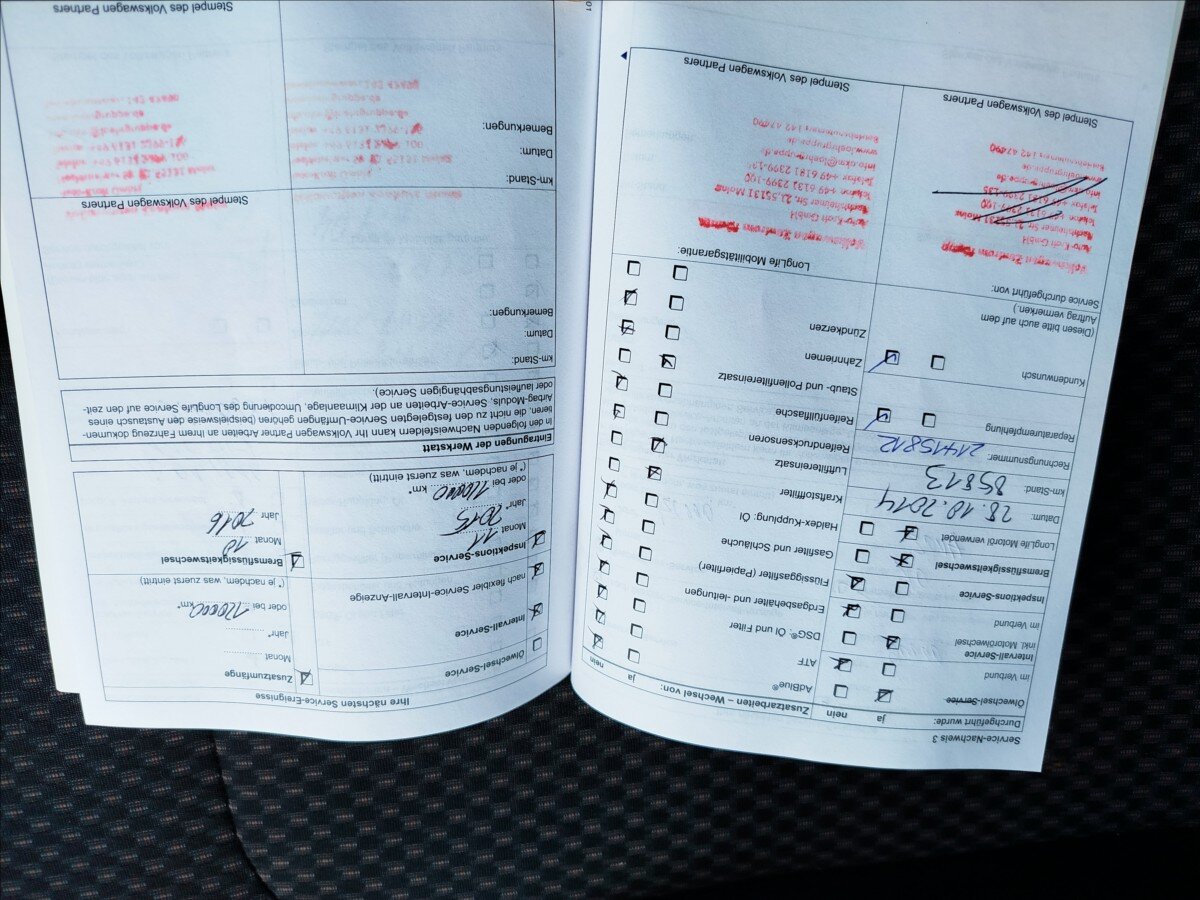 Service-Nachweis 3
Durchgeführt wurde:
ja
nein
Ölwechsel-Service
im Verbund
Intervall-Service
inkl. Motorölwechsel
im Verbund
Inspektions-Service
Bremsflüssigkeitswechsel
LongLife Motoröl verwendet
Datum: 28.10.2014
km-Stand: 85813
Rechnungsnummer: 21415812
Reparaturempfehlung
Kundenwunsch
(Diesen bitte auch auf dem
Auftrag vermerken.)
Service durchgeführt von:
Auto-Kraft GmbH
Telefon +49 6131 2399-100
Stempel des Volkswagen Partners
Zusatzarbeiten – Wechsel von:
ja
nein
AdBlue®
ATF
DSG®: Öl und Filter
Erdgasbehälter und -leitungen
Flüssiggasfilter (Papierfilter)
Gasfilter und Schläuche
Haldex-Kupplung: Öl
Kraftstofffilter
Luftfiltereinsatz
Reifendrucksensoren
Reifenfüllflasche
Staub- und Pollenfiltereinsatz
Zahnriemen
Zündkerzen
LongLife Mobilitätsgarantie:
Auto-Kraft GmbH
Telefon +49 6131 2399-100
www.loehrgruppe.de
Stempel des Volkswagen Partners
Ihre nächsten Service-Ereignisse
Ölwechsel-Service
Intervall-Service
nach flexibler Service-Intervall-Anzeige
Inspektions-Service
Monat 11
Jahr* 2015
oder bei 110000 km*
(* je nachdem, was zuerst eintritt)
Zusatzumfänge
Monat
Jahr*
oder bei 120000 km*
(* je nachdem, was zuerst eintritt)
Bremsflüssigkeitswechsel
Monat 10
Jahr 2016
Eintragungen der Werkstatt
In den folgenden Nachweisfeldern kann Ihr Volkswagen Partner Arbeiten an Ihrem Fahrzeug dokumen-
tieren, die nicht zu den festgelegten Service-Umfängen gehören (beispielsweise den Austausch eines
Airbag-Moduls, Service-Arbeiten an der Klimaanlage, Umcodierung des LongLife Service auf den zeit-
oder laufleistungsabhängigen Service).
km-Stand:
Datum:
Bemerkungen:
Stempel des Volkswagen Partners
km-Stand:
Datum:
Bemerkungen:
Stempel des Volkswagen Partners
Stempel des Volkswagen Partners